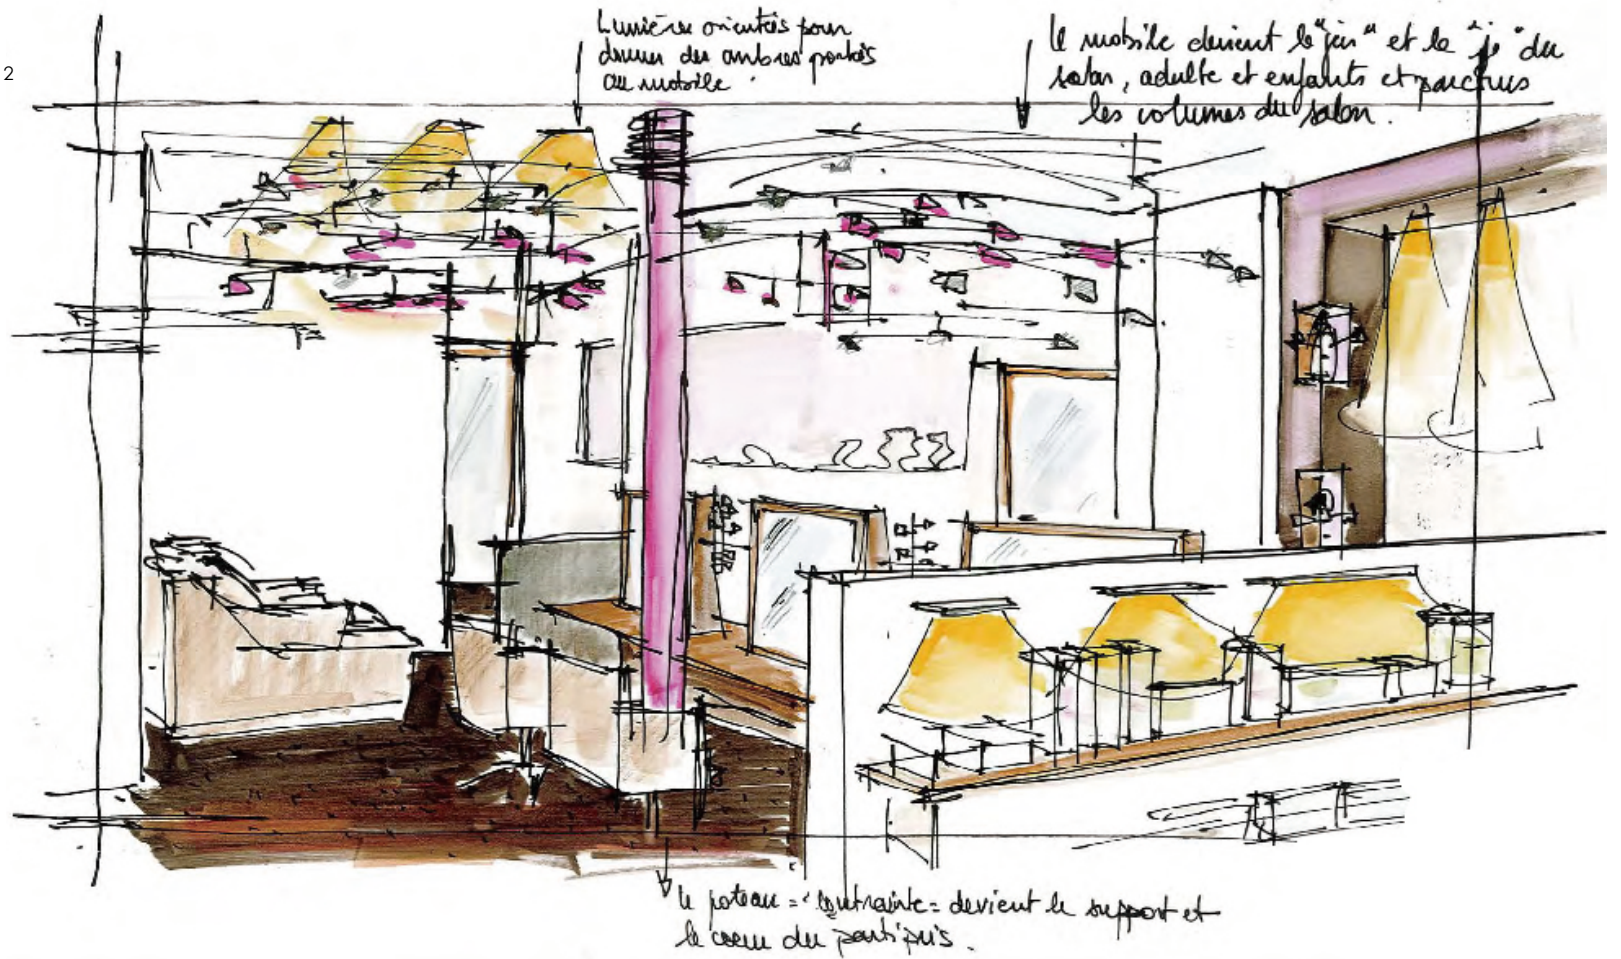 2
Lumières orientées pour
donner des ombres portées
au mobile.
le mobile devient le "jeu" et le "je" du
salon, adulte et enfants et parcours
les volumes du salon.
le poteau = contrainte = devient le support et
le coeur du parti pris.